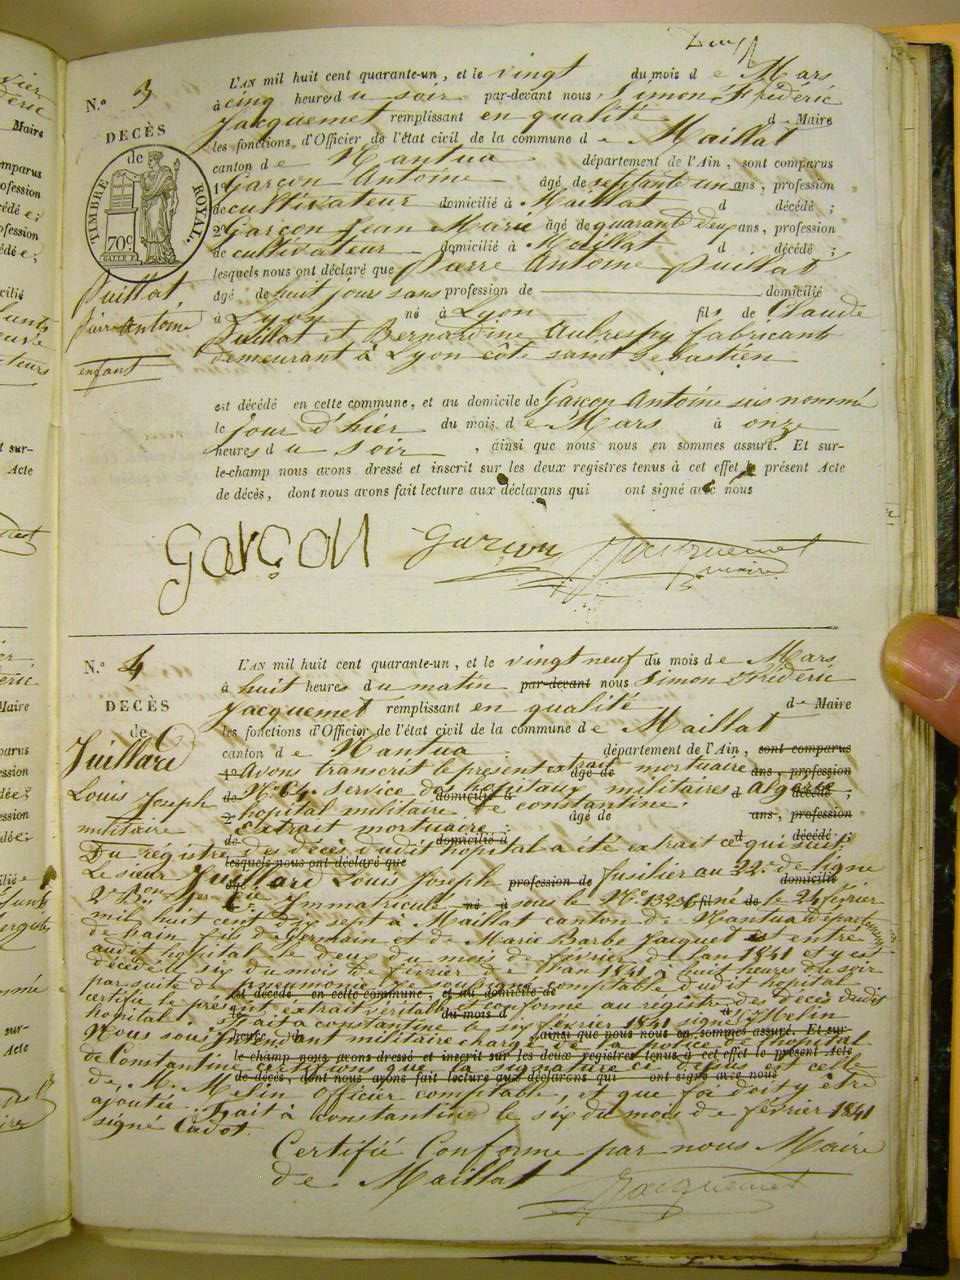 N.° 3
DECÈS
de
TIMBRE ROYAL.
70c
Puillat,
Pierre Antoine
enfant
L'AN mil huit cent quarante-un, et le vingt du mois de Mars
à cinq heures du soir par-devant nous, Simon Frédéric
Jacquemet remplissant en qualité de Maire
les fonctions d'Officier de l'état civil de la commune de Maillat
canton de Nantua département de l'Ain, sont comparus
1° Garçon Antoine âgé de septante un ans, profession
de cultivateur domicilié à Maillat d décédé;
2° Garçon Jean Marie âgé de quarante deux ans, profession
de cultivateur domicilié à Maillat d décédé;
lesquels nous ont déclaré que Pierre Antoine Puillat
âgé de huit jours sans profession de domicilié
à Lyon né à Lyon fils de Claude
Puillat et Bernardine Aubrespy fabricants
demeurant à Lyon côte saint Sébastien
est décédé en cette commune, et au domicile de Garçon Antoine sus nommé
le jour d'hier du mois de Mars à onze
heures du soir, ainsi que nous nous en sommes assuré. Et sur-
le-champ nous avons dressé et inscrit sur les deux registres tenus à cet effet le présent Acte
de décès, dont nous avons fait lecture aux déclarans qui ont signé avec nous
Garçon Garçon Jacquemet
maire
N.° 4
DECÈS
de
Juillard
Louis Joseph
militaire
L'AN mil huit cent quarante-un, et le vingt neuf du mois de Mars
à huit heures du matin par-devant nous Simon Frédéric
Jacquemet remplissant en qualité de Maire
les fonctions d'Officier de l'état civil de la commune de Maillat
canton de Nantua département de l'Ain, sont comparus
avons transcrit le présent extrait mortuaire
N° 64. service des hôpitaux militaires algérie
hopital militaire de constantine.
Extrait mortuaire:
Du régistre des décès dudit hopital a été extrait ce qui suit:
Le sieur Juillard Louis Joseph fusilier au 22e de ligne
2e Bon Immatriculé sous le N° né le 24 février
mil huit cent dix sept à Maillat canton de Nantua départ
de l'ain fils de Germain et de Marie Barbe Jacquet est entré
audit hopital le deux du mois de février de l'an 1841 et y est
décédé le six du mois de février de l'an 1841 à huit heures du soir
par suite de pneumonie Je soussigné comptable dudit hopital
certifie le présent extrait véritable et conforme au registre des décès dudit
hopital fait à constantine le six février 1841 signé Melin
Nous sous intendant militaire chargé de la police de l'hopital
de Constantine certifions que la signature ci dessus est celle
de M. Melin officier comptable, et que foi doit y être
ajoutée. Fait à constantine le six du mois de février 1841
signé Cadot.
Certifié Conforme par nous Maire
de Maillat Jacquemet